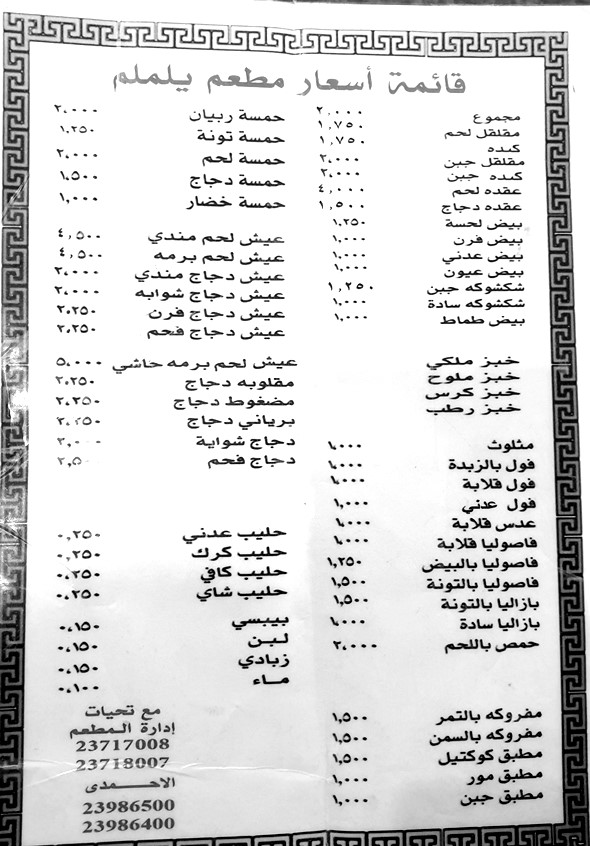 قائمة أسعار مطعم يلملم
مجموع ٢,٠٠٠
مقلقل لحم ١,٧٥٠
كبده ١,٧٥٠
مقلقل جبن ٢,٠٠٠
كبده جبن ٢,٠٠٠
عقده لحم ٤,٠٠٠
عقده دجاج ١,٥٠٠
بيض لحسة ١,٢٥٠
بيض فرن ١,٠٠٠
بيض عدني ١,٠٠٠
بيض عيون ١,٠٠٠
شكشوكه جبن ١,٢٥٠
شكشوكه سادة ١,٠٠٠
بيض طماط ١,٠٠٠
خبز ملكي
خبز ملوح
خبز كرس
خبز رطب
مثلوث ١,٠٠٠
فول بالزبدة ١,٠٠٠
فول قلابة ١,٠٠٠
فول عدني ١,٠٠٠
عدس قلابة ١,٠٠٠
فاصوليا قلابة ١,٠٠٠
فاصوليا بالبيض ١,٢٥٠
فاصوليا بالتونة ١,٥٠٠
بازاليا بالتونة ١,٥٠٠
بازاليا سادة ١,٠٠٠
حمص باللحم ٢,٠٠٠
مفروكه بالتمر ١,٥٠٠
مفروكه بالسمن ١,٥٠٠
مطبق كوكتيل ١,٥٠٠
مطبق مور ١,٠٠٠
مطبق جبن ١,٠٠٠
حمسة ربيان ٢,٠٠٠
حمسة تونة ١,٢٥٠
حمسة لحم ٢,٠٠٠
حمسة دجاج ١,٥٠٠
حمسة خضار ١,٠٠٠
عيش لحم مندي ٤,٥٠٠
عيش لحم برمه ٤,٥٠٠
عيش دجاج مندي ٢,٠٠٠
عيش دجاج شوايه ٢,٠٠٠
عيش دجاج فرن ٢,٢٥٠
عيش دجاج فحم ٢,٢٥٠
عيش لحم برمه حاشي ٥,٠٠٠
مقلوبه دجاج ٢,٢٥٠
مضغوط دجاج ٢,٢٥٠
برياني دجاج ٢,٢٥٠
دجاج شواية
دجاج فحم
حليب عدني ٠,٢٥٠
حليب كرك ٠,٢٥٠
حليب كافي ٠,٢٥٠
حليب شاي ٠,٢٥٠
بيبسي ٠,١٥٠
لبن ٠,١٥٠
زبادي ٠,١٥٠
ماء ٠,١٠٠
مع تحيات
إدارة المطعم
23717008
23718007
الاحمدى
23986500
23986400